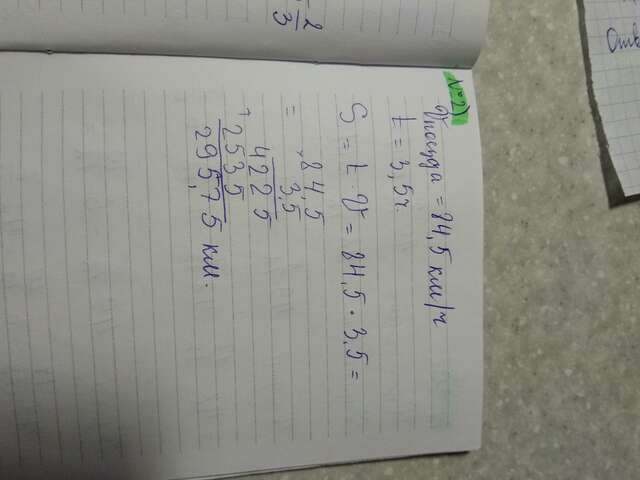 2
3
Отв
№2)
Vпоезда = 84,5 км/ч
t = 3,5ч.
S = t · V = 84,5 · 3,5 =
= × 84,5
3,5
4225
+ 2535
295,75 км.